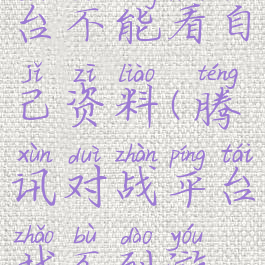 台不能看自
jǐ zī liào téng
己资料(腾
xùn duì zhàn píng tái
讯对战平台
zhǎo bù dào yóu
找不到游